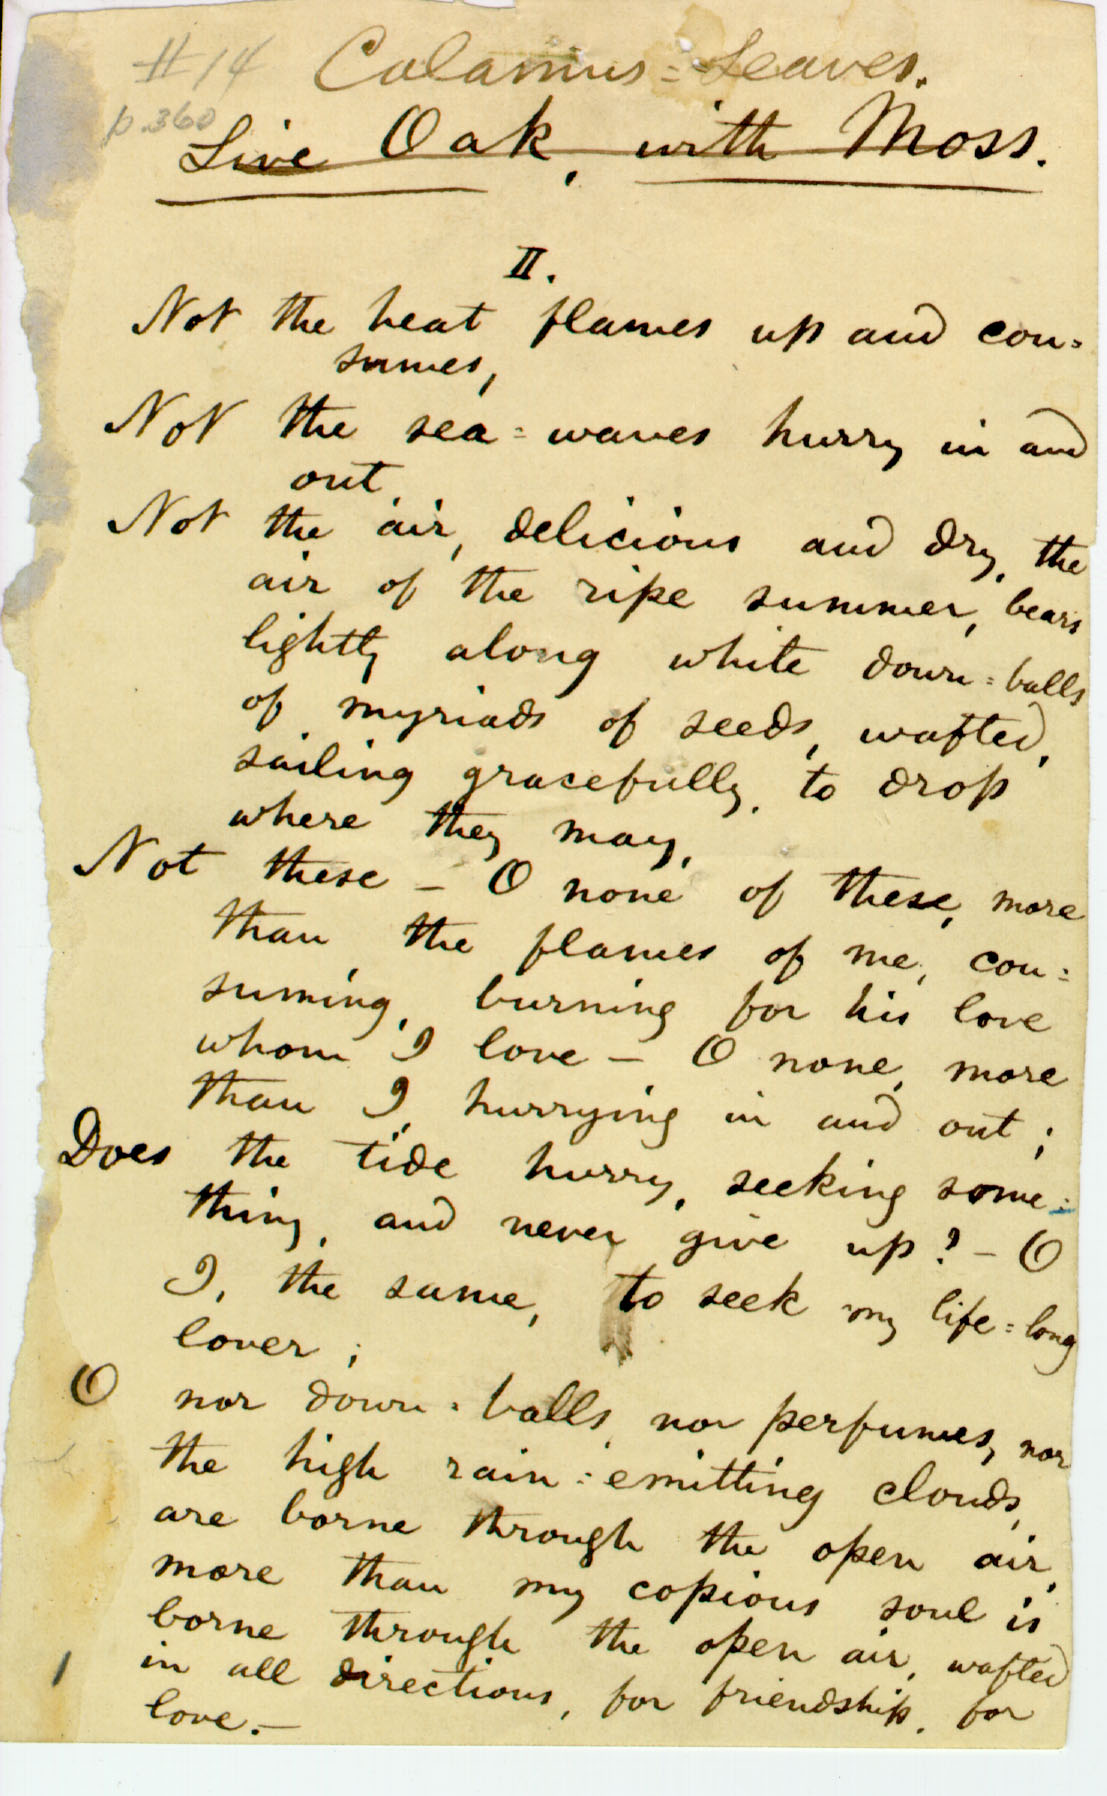 #14 Calamus=Leaves.
p.360
Live Oak, with Moss.
II.
Not the heat flames up and con=
sumes,
Not the sea=waves hurry in and
out,
Not the air, delicious and dry, the
air of the ripe summer, bears
lightly along white down=balls
of myriads of seeds, wafted,
sailing gracefully, to drop
where they may,
Not these — O none of these, more
than the flames of me, con=
suming, burning for his love
whom I love — O none, more
than I, hurrying in and out;
Does the tide hurry, seeking some=
thing, and never give up? — O
I, the same, to seek my life=long
lover;
O nor down=balls, nor perfumes, nor
the high rain=emitting clouds,
are borne through the open air,
more than my copious soul is
borne through the open air, wafted
in all directions, for friendship, for
love. —